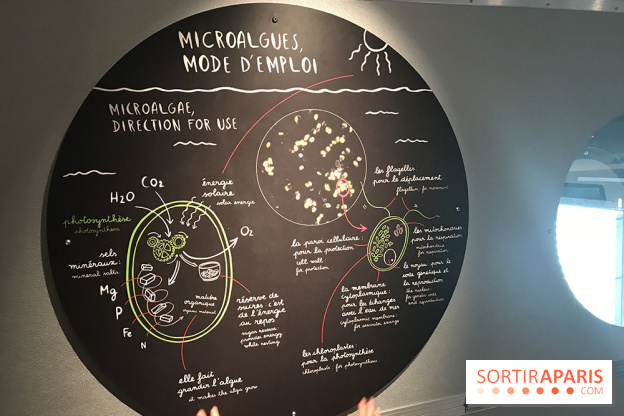 MICROALGUES,
MODE D'EMPLOI
MICROALGAE,
DIRECTION FOR USE
CO2
H2O
énergie
solaire
solar energy
photosynthèse
photosynthesis
O2
sels
minéraux:
mineral salts:
Mg
P
Fe
N
matière
organique
organic material
réserve de
sucres: c'est
de l'énergie
au repos
sugar reserve:
produces energy
while resting
elle fait
grandir l'algue
it makes the alga grow
les flagelles
pour le déplacement
flagellum: for movement
la paroi cellulaire:
pour la protection
cell wall:
for protection
les mitochondries
pour la respiration
mitochondria
for respiration
le noyau: pour le
code génétique et
la reproduction
the nucleus
for genetic code
and reproduction
la membrane
cytoplasmique:
pour les échanges
avec l'eau de mer
cytoplasmic membrane:
for seawater exchange
les chloroplastes:
pour la photosynthèse
chloroplasts: for photosynthesis
SORTIRAPARIS
.COM